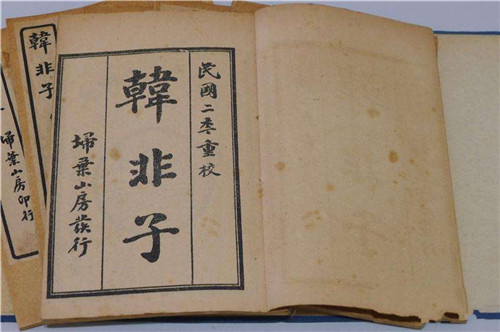 民國二秊重校
韓非子
埽葉山房發行
韓非子
埽葉山房印行